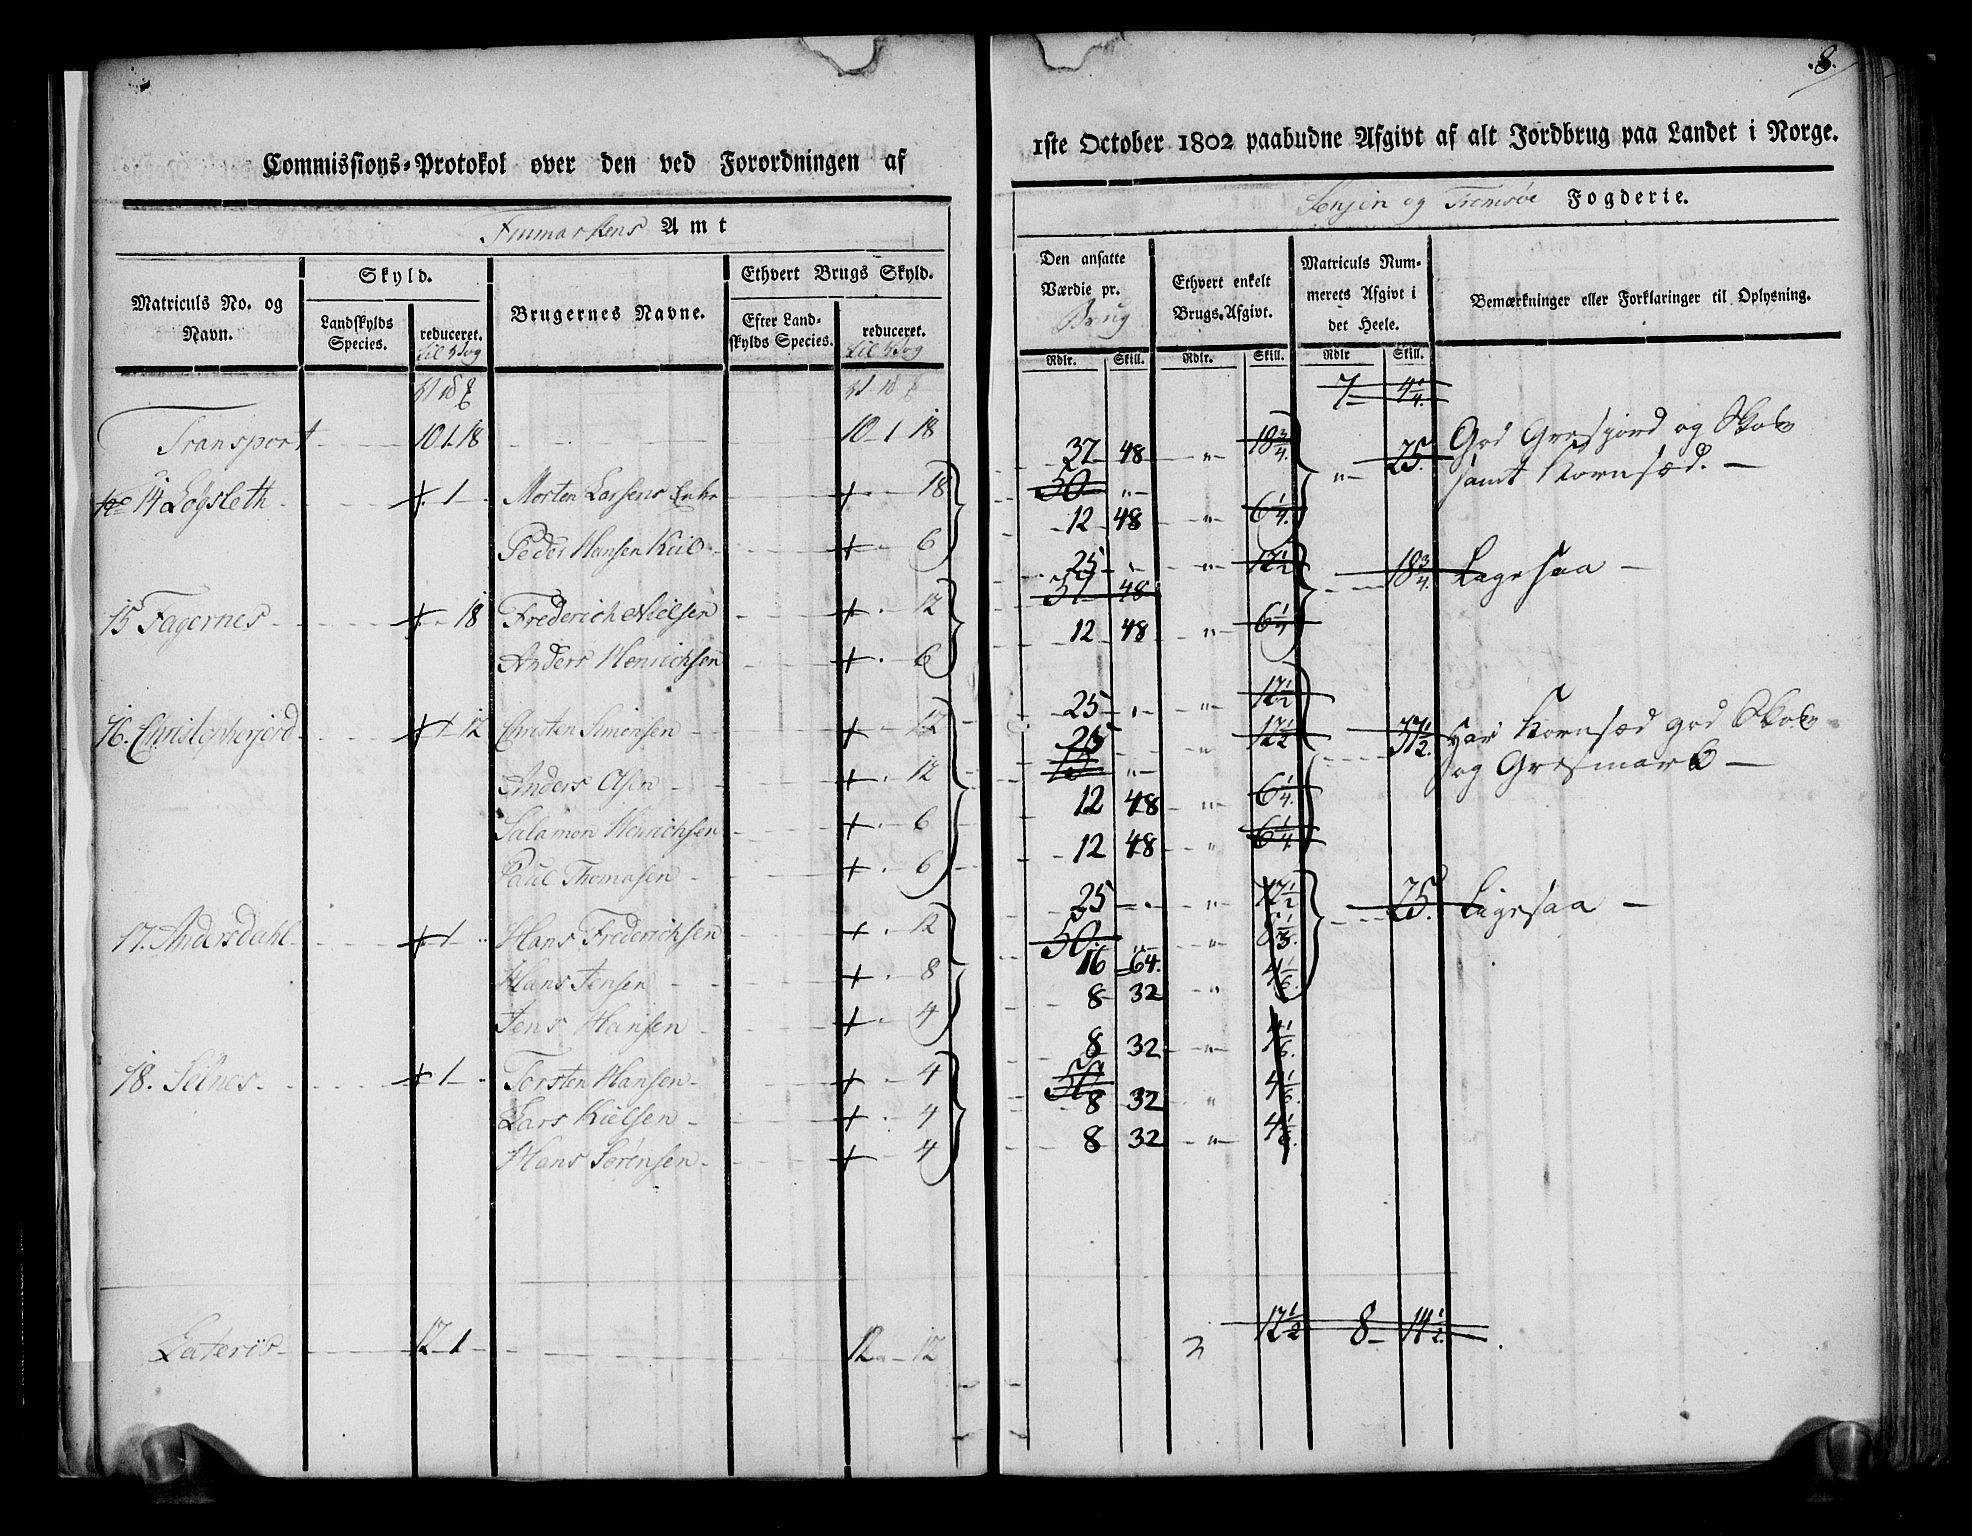 8.
Commissions-Protokol over den ved Forordningen af
1ste October 1802 paabudne Afgivt af alt Jordbrug paa Landet i Norge.
Finmarkens Amt
Senjen og Tromsøe Fogderie.
Matriculs No. og Navn.
Skyld.
Landskylds Species.
reduceret.
Brugernes Navne.
Ethvert Brugs Skyld.
Efter Landskylds Species.
reduceret.
Den ansatte Værdie pr. Brug
Ethvert enkelt Brugs-Afgivt.
Matriculs Nummerets Afgivt i det Heele.
Bemærkninger eller Forklaringer til Oplysning.
Rdlr. Skill. Rdlr. Skill. Rdlr Skill.
7 4 1/4.
Transport 10 1 18 10 1 18
14 Logsleth 1 Morten Larsens Enke 18 37 48 " 18 3/4. " 25. God Gresgord og Skov
50 " samt Kornsæd.
Peder Hansen Kiil 6 12 48 " 6 1/4.
15 Fagernes 18 Frederich Nielsen 12 25 " 12 1/2 18 3/4. Ligesaa
37 48
Anders Henrichsen 6 12 48 " 6 1/4
16. Christopherjord 1 12 Christen Simensen 12 25 " 12 1/2 37 1/2. Har Kornsæd god Skov
Anders Olsen 12 25 " 12 1/2 og Gresmark
75 "
Salamon Henrichsen 6 12 48 " 6 1/4.
Paul Thomasen 6 12 48 " 6 1/4
17. Andersdahl 1 Hans Frederichsen 12 25 " 12 1/2 25. Ligesaa
50 "
Hans Jensen 8 16 64. " 8 1/3.
Jens Hansen 4 8 32 " 4 1/6.
18. Selnes 1 Torsten Hansen 4 8 32 " 4 1/6.
Lars Kielsen 4 8 32 " 4 1/6.
Hans Sørensen 4 8 32 " 4 1/6.
Lateris 12 1 12 12 12 1/2 8 14 1/2.